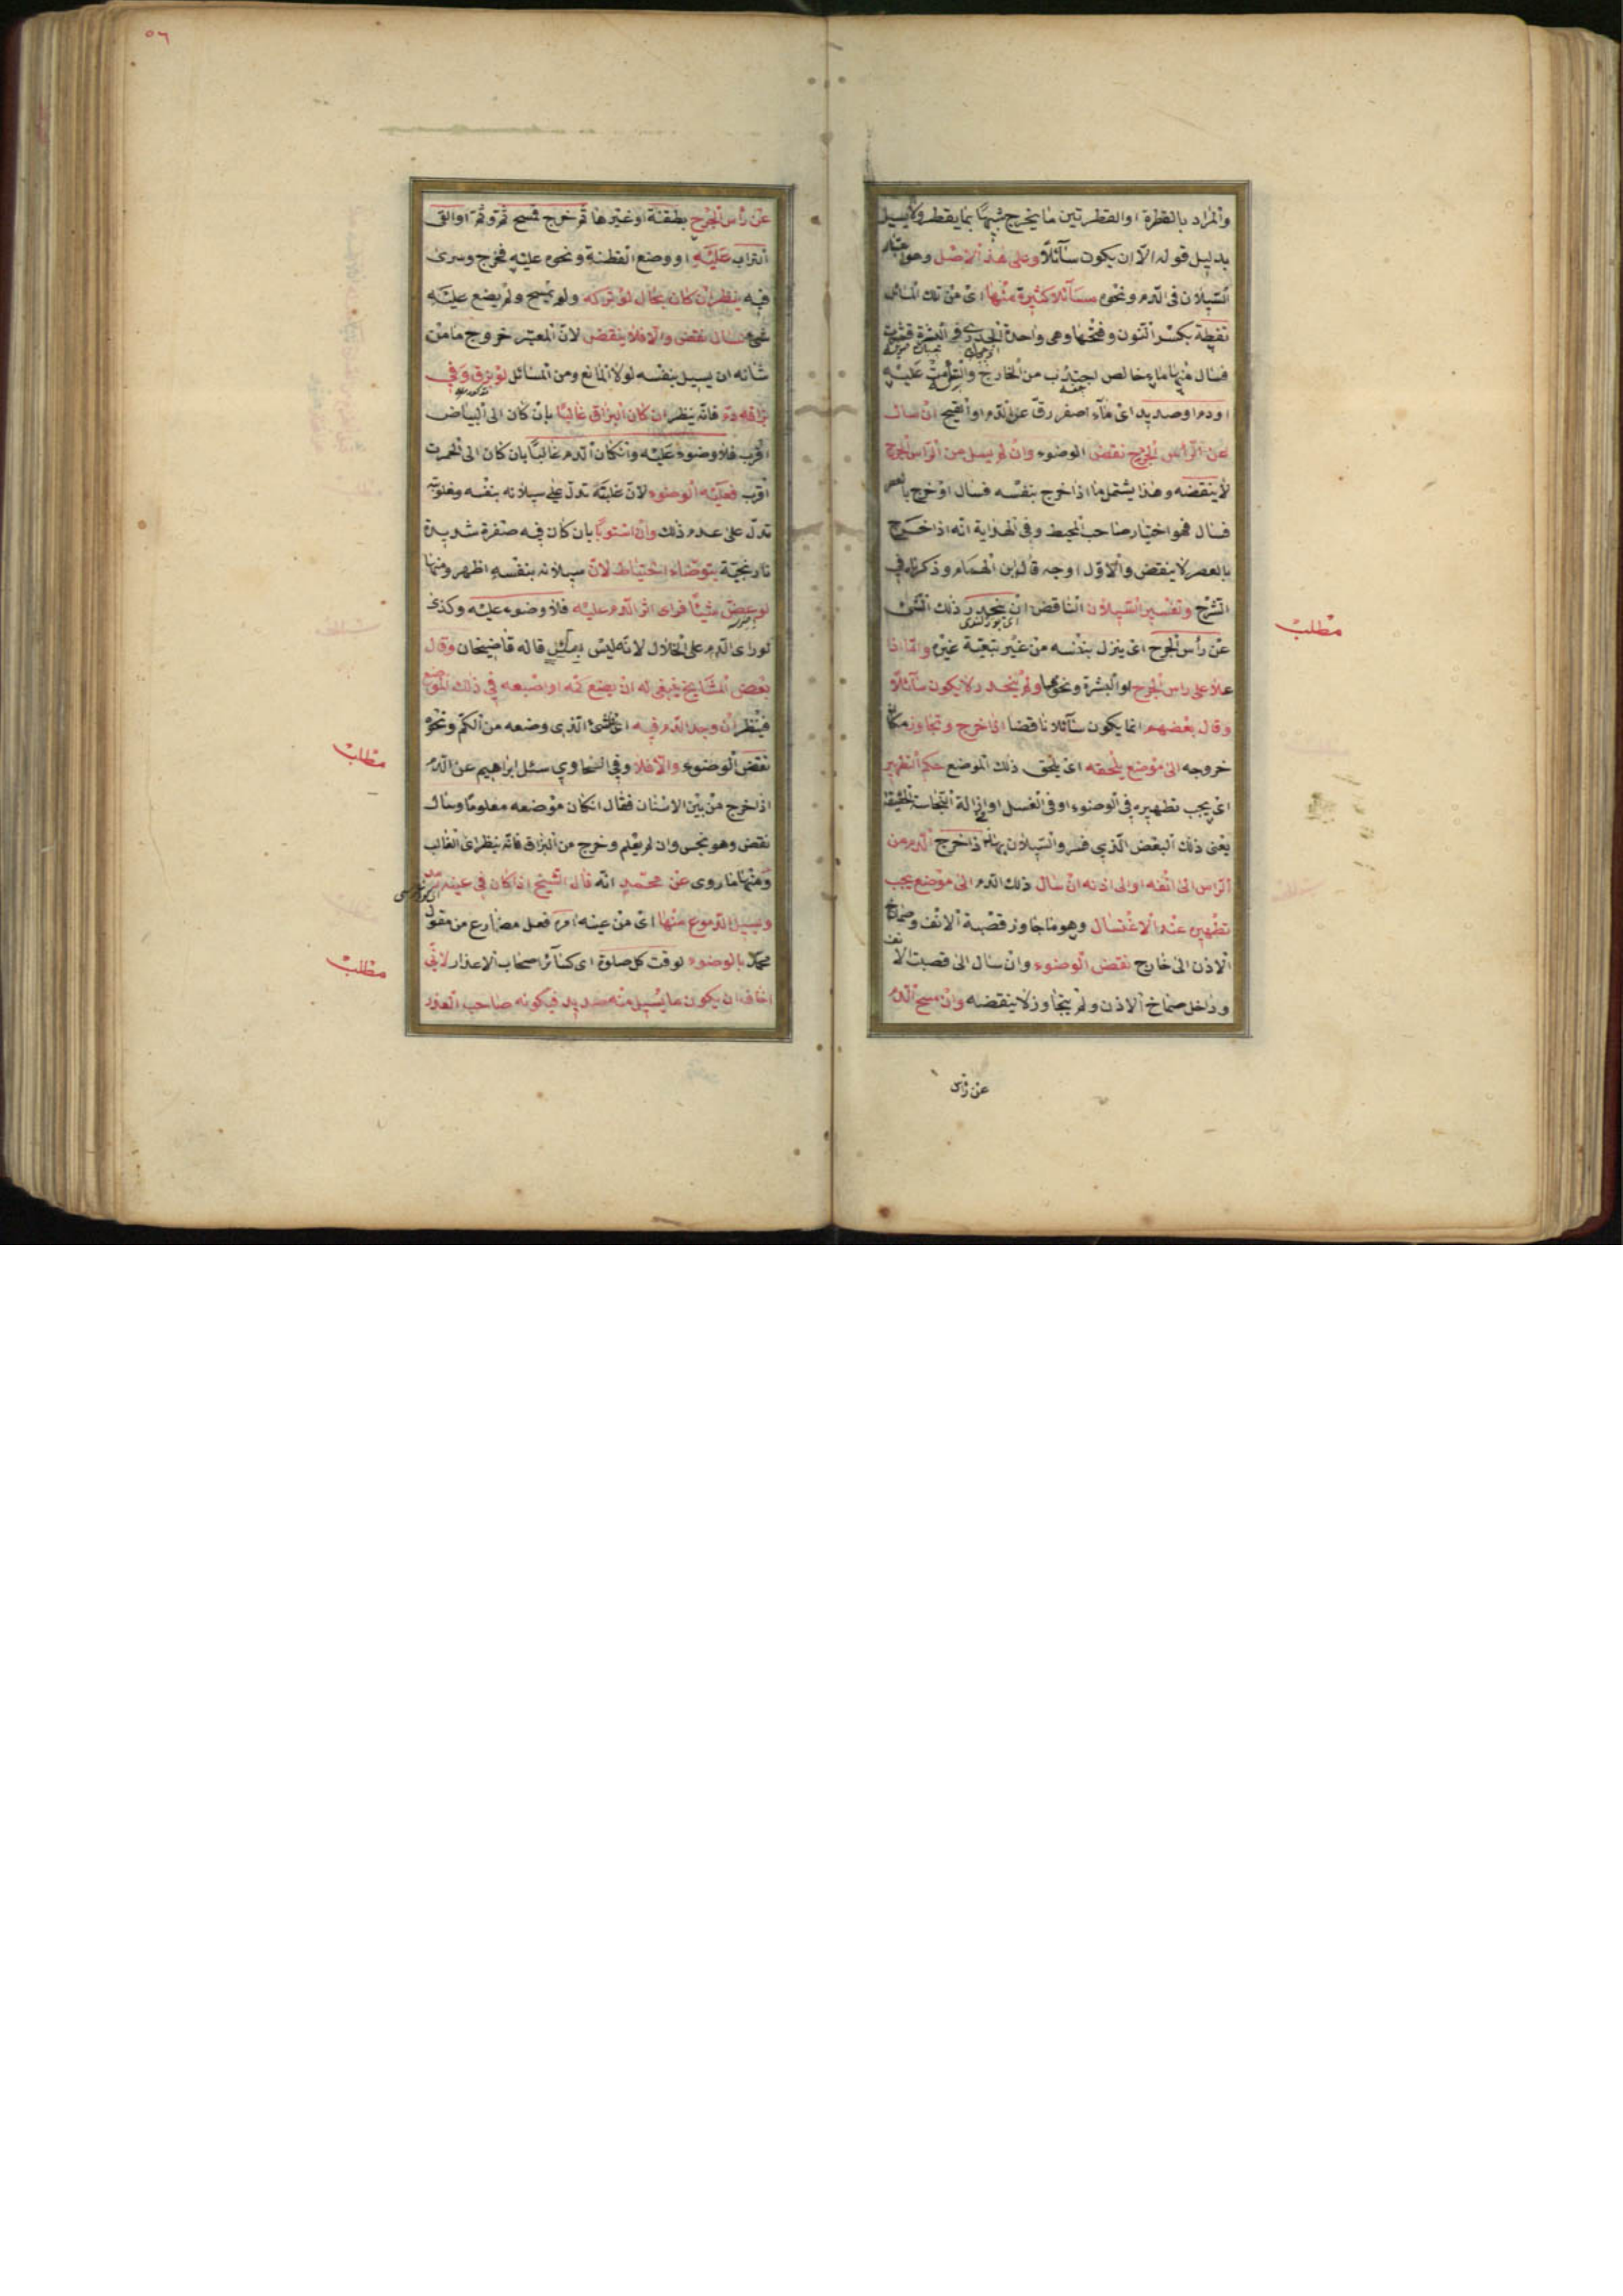 والمراد بالقطرة او القطرتين ما يخرج شبيها بما يقطر ولا يسيل
بدليل قوله الا ان يكون سآئلا وعلى هذ الاصل وهو اعتبار
السيلان فى الدم ونحوه مسآئل كثيرة منها اى من تلك المسائل
نفطة بكسر النون وفتحها وهى واحدة الجدرى فى البشرة قشرت
فسال منها ماء خالص من الخارج والتأمت عليه
او دم او صديد اى مآء اصفر رق عن الدم او القيح ان سال
عن الرأس الجرح نقض الوضوء وان لم يسل من الرأس الجرح
لا ينقضه وهذا يشتمل ما اذا خرج بنفسه فسال او خرج بالعصر
فسال فهو اختيار صاحب المحيط وفى الهداية انه اذا خرج
بالعصر لا ينقض والاول اوجه قاله ابن الهمام وذكرناه فى
الشرح وتفسير السيلان الناقض ان ينحدر ذلك الشئ
عن رأس الجرح اى ينزل بنفسه من غير تبعية غيره واما اذا
علا على راس الجرح او البشرة ونحوها ولم ينحدر لا يكون سآئلا
وقال بعضهم انما يكون سآئلا ناقضا اذا خرج وتجاوز مكان
خروجه الى موضع يلحقه اى يلحق ذلك الموضع حكم التطهير
اى يجب تطهيره فى الوضوء او فى الغسل او ازالة النجاسة الحقيقة
يعنى ذلك البعض الذى فسروا السيلان بهذا اذا خرج الدم من
الراس الى انفه او الى اذنه ان سال ذلك الدم الى موضع يجب
تطهيره عند الاغتسال وهو ما جاوز قصبة الانف وصماخ
الاذن الى خارج نقض الوضوء وان سال الى قصبت الانف
وداخل صماخ الاذن ولم يتجاوز لا ينقضه وان مسح الدم
عن رأس
مطلب
٥٦
عن رأس الجرح بقطنة او غيرها ثم خرج فمسح ثم وثم او القى
التراب عليه او وضع القطنة ونحوه عليه فخرج وسرى
فيه ينظر ان كان بحال لو تركه ولم يمسح ولم يضع عليه
شئ سال نقض والا فلا ينقض لان المعتبر خروج ما من
شانه ان يسيل بنفسه لولا المانع ومن المسائل لو بزق وفى
بزاقه دم فانه ينظر ان كان البزاق غالبا بان كان الى البياض
اقرب فلا وضوء عليه وان كان الدم غالبا بان كان الى الحمرت
اقرب فعليه الوضوء لان غلبته تدل على سيلانه بنفسه ومغلوبيته
تدل على عدم ذلك وان استويا بان كان فيه صفرة شديدة
نارنجية يتوضاء احتياطا لان سيلانه بنفسه اظهر ومنها
لو عض شيئا فراى اثر الدم عليه فلا وضوء عليه وكذى
لو راى الدم على الخلال لانه ليس بسآئل قاله قاضيخان وقال
بعض المشايخ ينبغى له ان يضع كمه او اصبعه فى ذلك الموضع
فينظر ان وجد الدم فيه اى الشئ الذى وضعه من الكم ونحوه
نقض الوضوء والا فلا وفى سئل ابراهيم عن الدم
اذا خرج من بين الاسنان فقال ان كان موضعه معلوما وسال
نقض وهو نجس وان لم يعلم وخرج من البزاق فانه ينظر اى الغالب
ومنها ما روى عن محمد انه قال الشيخ اذا كان فى عينه رمد
ويسيل الدموع منها اى من عينه امره فعل مضارع من مقول
محمد بالوضوء لوقت كل صلوة اى كسآئر اصحاب الاعذار لانى
اخاف ان يكون ما يسيل منه صديد فيكونه صاحب العذر
مطلب
مطلب